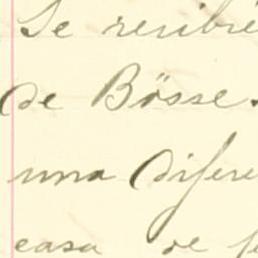 Se recibie
de Bösse.
una difere
casa de f